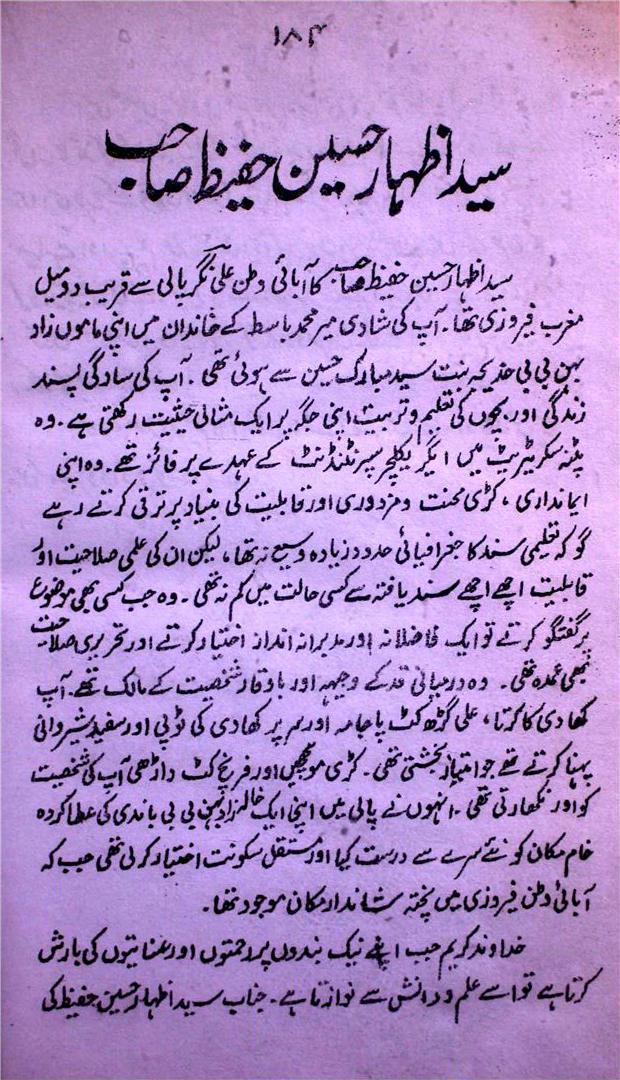 ۱۸۴
سید اظہار حسین حفیظ صاحب
سید اظہار حسین حفیظ صاحب کا آبائی وطن علی نگر پالی سے قریب دو میل
مغرب فیروزی تھا۔ آپ کی شادی میر محمد باسط کے خاندان میں اپنی ماموں زاد
بہن بی بی خدیجہ بنت سید مبارک حسین سے ہوئی تھی۔ آپ کی سادگی پسند
زندگی اور بچوں کی تعلیم و تربیت اپنی جگہ پر ایک مثالی حیثیت رکھتی ہے۔ وہ
پٹنہ سکریٹریٹ میں ایگریکلچر سپرنٹنڈنٹ کے عہدے پر فائز تھے۔ وہ اپنی
ایمانداری، کڑی محنت و مزدوری اور قابلیت کی بنیاد پر ترقی کرتے رہے
گو کہ تعلیمی سند کا جغرافیائی حدود زیادہ وسیع نہ تھا، لیکن ان کی علمی صلاحیت اور
قابلیت اچھے اچھے سند یافتہ سے کسی حالت میں کم نہ تھی۔ وہ جب کسی بھی موضوع
پر گفتگو کرتے تو ایک فاضلانہ اور مدبرانہ انداز اختیار کرتے اور تحریری صلاحیت
بھی عمدہ تھی۔ وہ درمیانی قد کے وجیہہ اور باوقار شخصیت کے مالک تھے۔ آپ
کھادی کا کرتا، علی گڑھ کٹ پاجامہ اور سر پر کھادی کی ٹوپی اور سفید شیروانی
پہنا کرتے تھے جو امتیاز بخشتی تھی۔ کڑی مونچھیں اور فرنچ کٹ داڑھی آپ کی شخصیت
کو اور نکھارتی تھی۔ انہوں نے پالی میں اپنی ایک خالہ زاد بہن بی بی باندی کی عطا کردہ
خام مکان کو نئے سرے سے درست کیا اور مستقل سکونت اختیار کر لی تھی جب کہ
آبائی وطن فیروزی میں پختہ شاندار مکان موجود تھا۔
خداوند کریم جب اپنے نیک بندوں پر رحمتوں اور عنایتوں کی بارش
کرتا ہے تو اسے علم و دانش سے نوازتا ہے۔ جناب سید اظہار حسین حفیظ کی